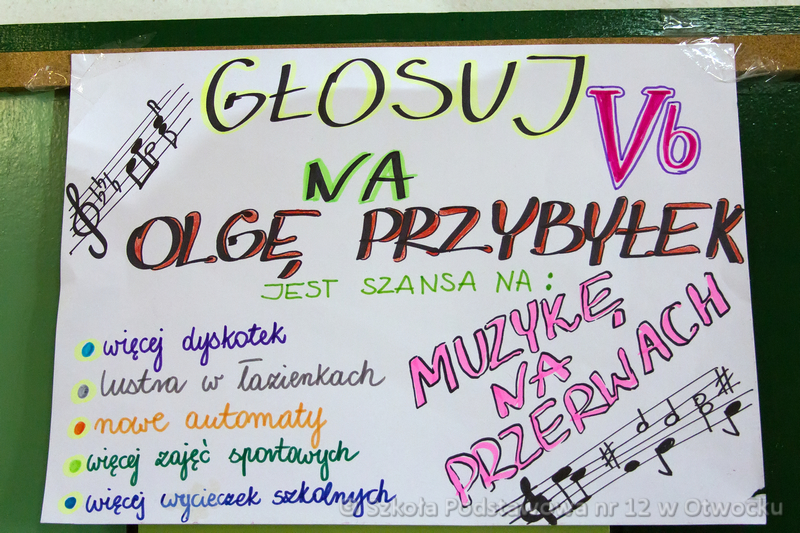 GŁOSUJ
Vb
NA
OLGĘ PRZYBYŁEK
JEST SZANSA NA:
MUZYKĘ
NA
PRZERWACH
więcej dyskotek
lustra w łazienkach
nowe automaty
więcej zajęć sportowych
więcej wycieczek szkolnych
© Szkoła Podstawowa nr 12 w Otwocku